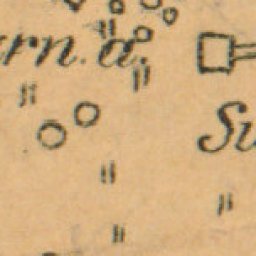 rn. a.
Su